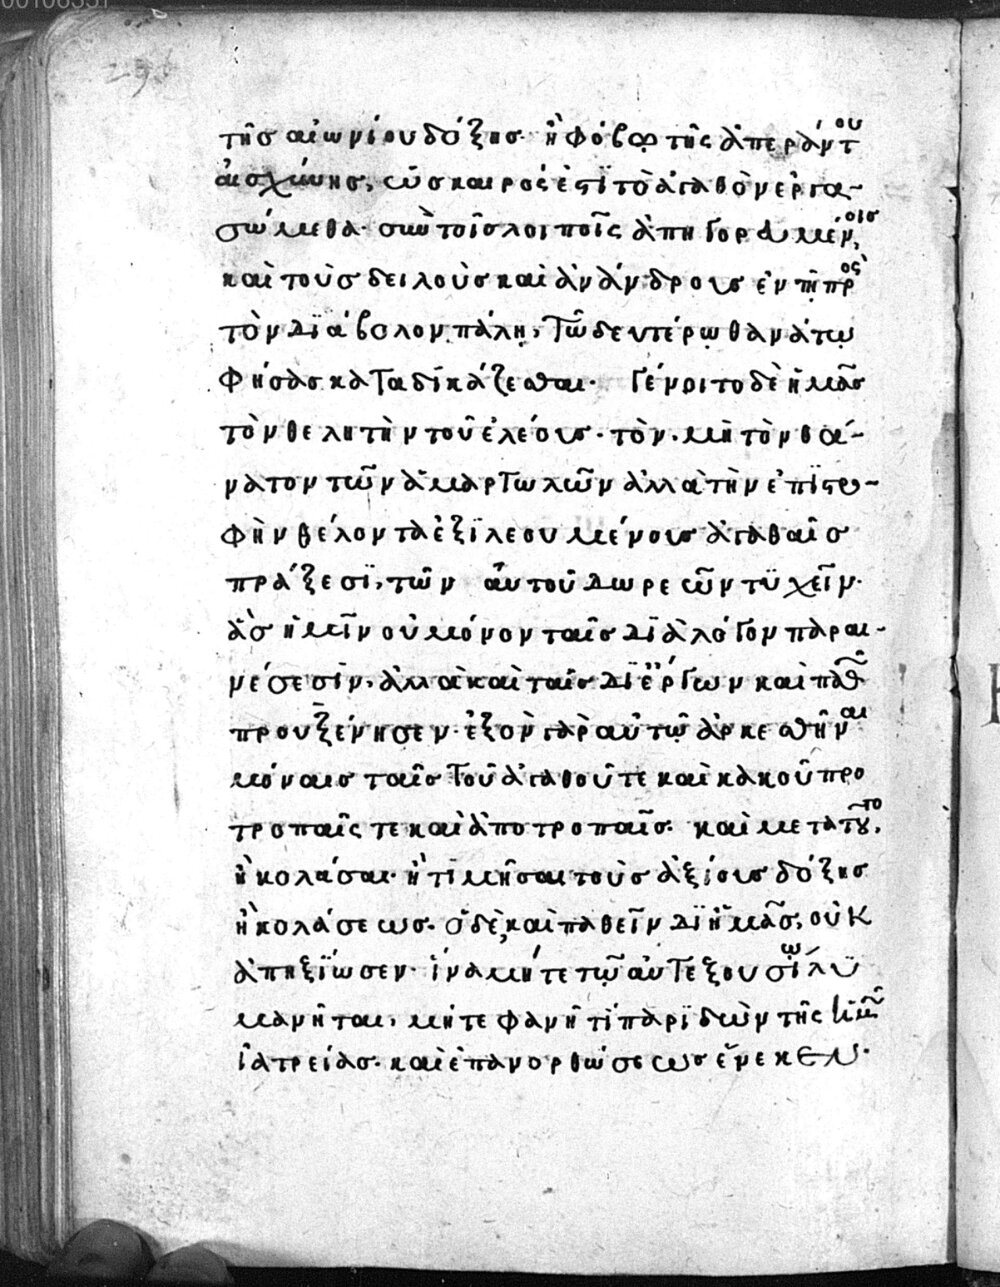 τῆς αἰωνίου δόξης· ἢ φόβω τῆς ἀπεράντου
αἰσχύνης, ὡς καιρός ἐστὶ τὸ ἀγαθὸν ἐργα-
σώμεθα· σὺν τοῖς λοιποῖς ἀπηγορευμένοις,
καὶ τοὺς δειλοὺς καὶ ἀνάνδρους ἐν τῆ πρὸς
τὸν διάβολον πάλη, τῶ δευτέρω θανάτω
φήσας καταδικάζεσθαι· γένοιτο δὲ ἡμᾶς
τὸν θελητὴν τοῦ ἐλέους· τὸν μὴ τὸν θά-
νατον τῶν ἁμαρτωλῶν ἀλλὰ τὴν ἐπιστρο-
φὴν θέλοντα ἐξιλεουμένους ἀγαθαῖς
πράξεσϊ, τῶν αὐτοῦ δωρεῶν τυχεῖν·
ἃς ἡμῖν οὐ μόνον ταῖς διὰ λόγον παραι-
νέσεσϊν, ἀλλὰ καὶ ταῖς δι ἔργων καὶ παθῶν
προυξένησεν· ἐξὸν γὰρ αὐτῶ ἀρκεσθῆναι
μόναις ταῖς τοῦ ἀγαθοῦ τε καὶ κακοῦ προ
τροπαῖς τε καὶ ἀποτροπαῖς· καὶ μετὰ τοῦτο,
ἢ κολάσαι· ἢ τιμῆσαι τοὺς ἀξίους δόξης
ἢ κολάσεως· ὁ δὲ, καὶ παθεῖν δι ἡμᾶς, οὐκ
ἀπηξίωσεν· ἵνα μήτε τῶ αὐτεξουσίω λυ
μανῆται, μήτε φανῆ τι παριδὼν τῆς ἡμῶν
ἰατρείας· καὶ ἐπανορθώσεως ἕνεκεν·